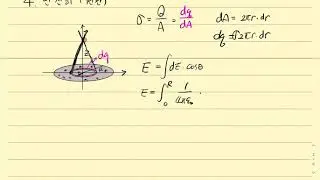 4
σ = Q/A = dq/dA
dA = 2πr·dr
dq = σ2πr·dr
dq
E = ∫dE·cosθ
E = ∫₀ᴿ 1/4πε₀ ·